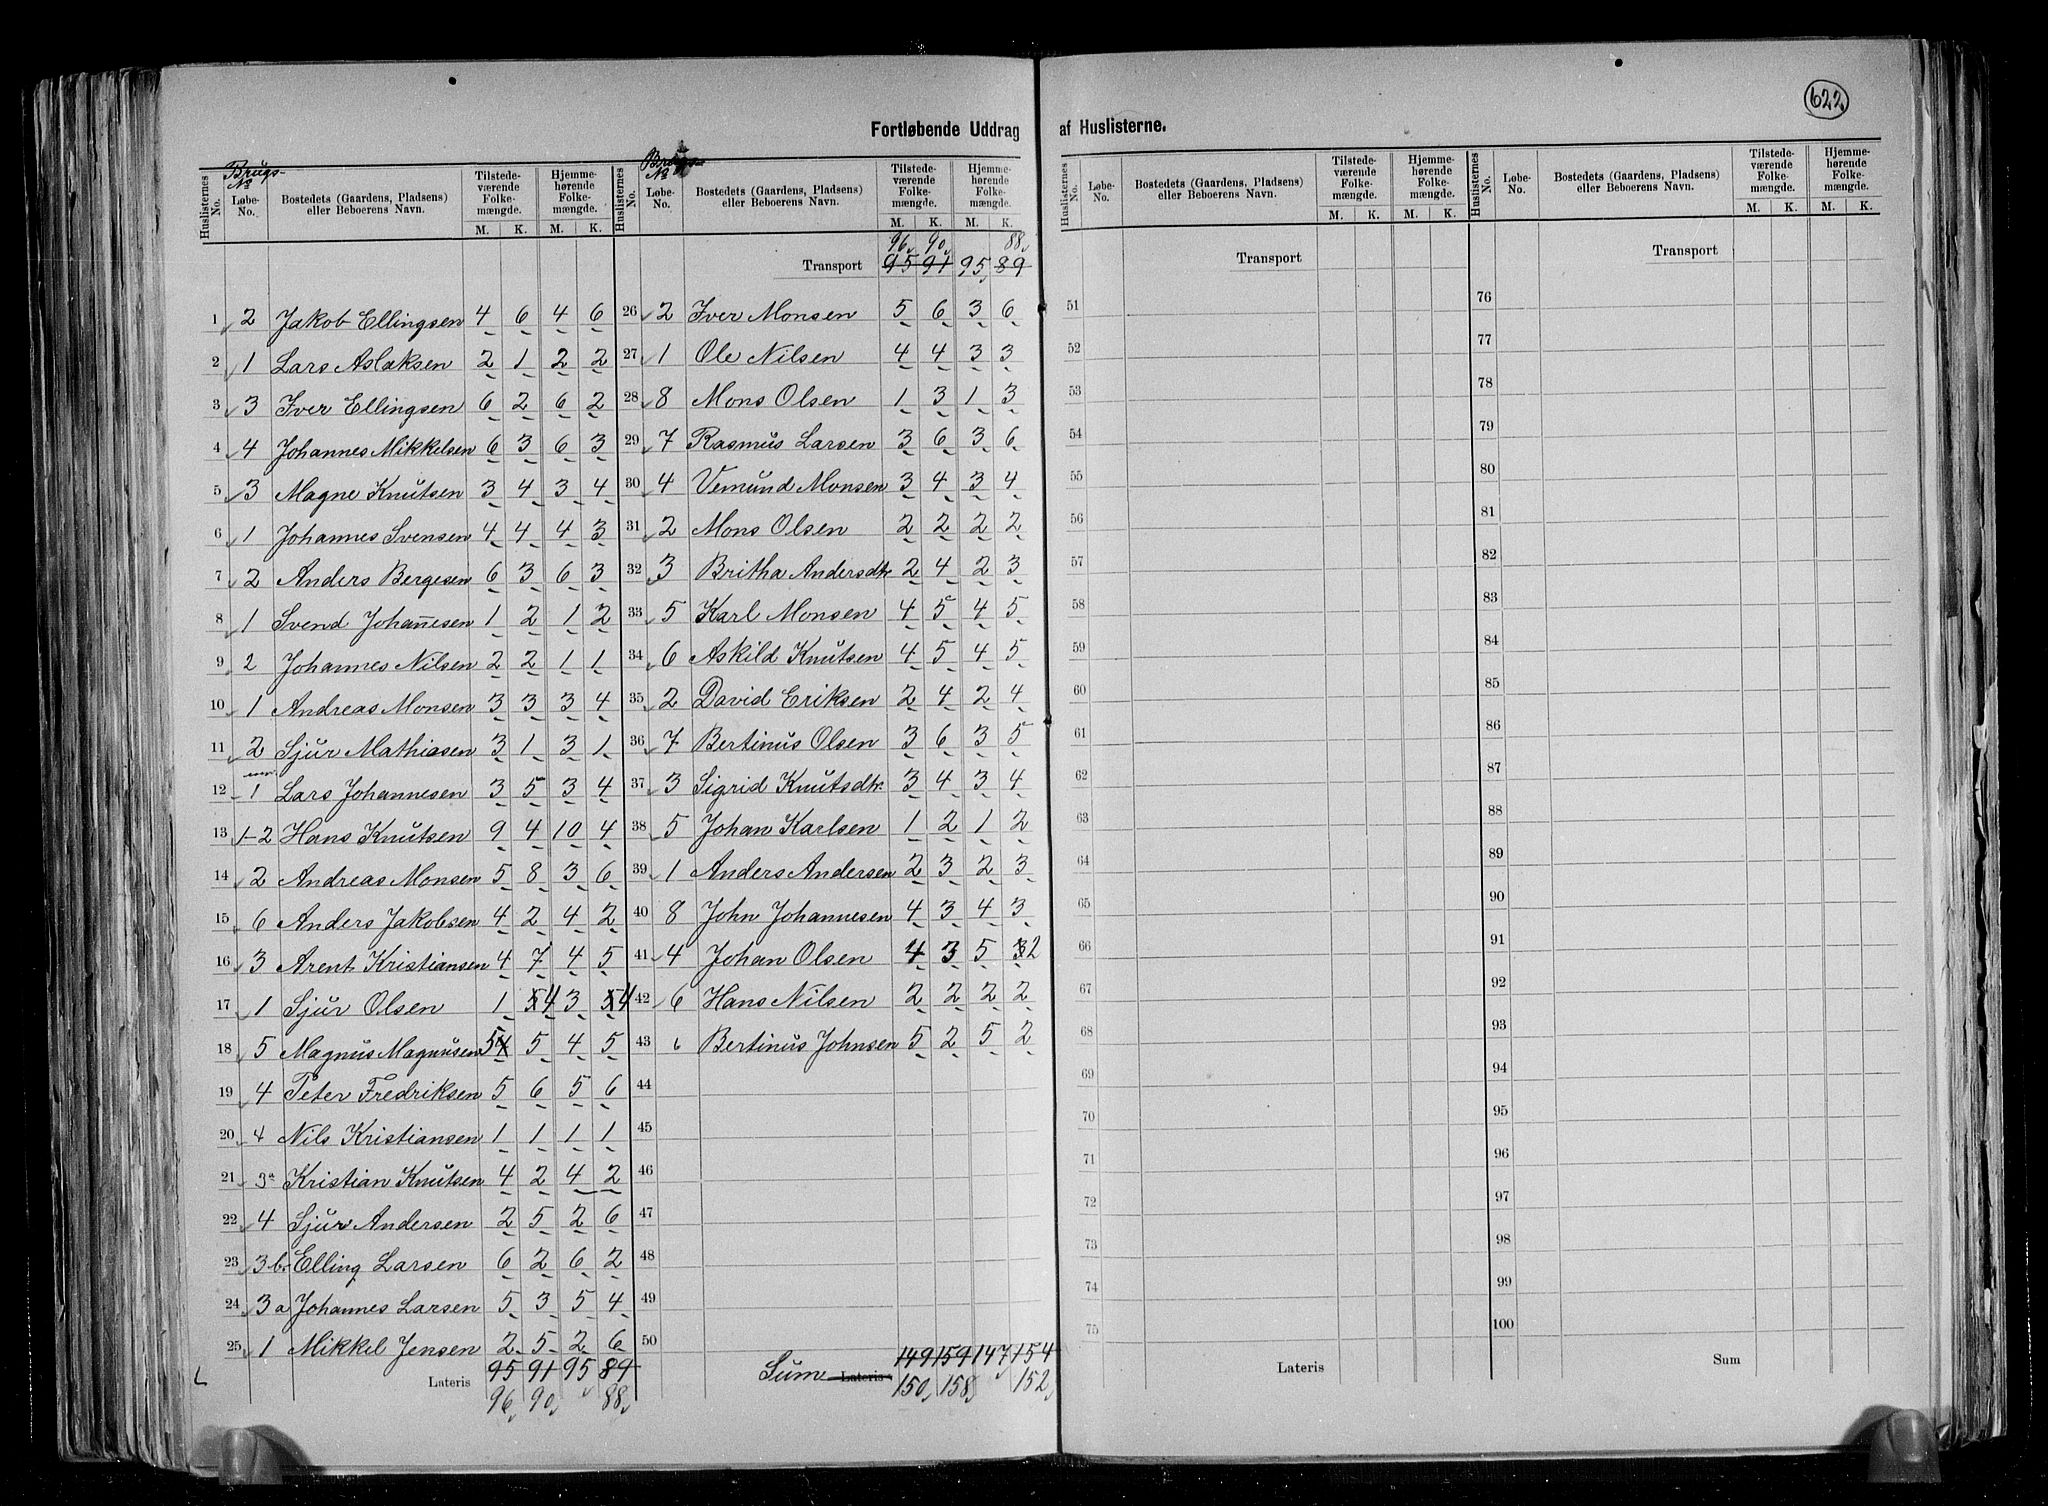 622
Fortløbende Uddrag af Huslisterne.
Huslisternes No. Brugs-No Løbe-No. Bostedets (Gaardens, Pladsens) eller Beboerens Navn. Tilstedeværende Folkemængde. M. K. Hjemmehørende Folkemængde. M. K.
1 2 Jakob Ellingsen 4 6 4 6
2 1 Lars Aslaksen 2 1 2 2
3 3 Iver Ellingsen 6 2 6 2
4 4 Johannes Mikkelsen 6 3 6 3
5 3 Magne Knutsen 3 4 3 4
6 1 Johannes Svensen 4 4 4 3
7 2 Anders Bergesen 6 3 6 3
8 1 Svend Johannesen 1 2 1 2
9 2 Johannes Nilsen 2 2 1 1
10 1 Andreas Monsen 3 3 3 4
11 2 Sjur Mathiasen 3 1 3 1
12 1 Lars Johannesen 3 5 3 4
13 1-2 Hans Knutsen 9 4 10 4
14 2 Andreas Monsen 5 8 3 6
15 6 Anders Jakobsen 4 2 4 2
16 3 Arent Kristiansen 4 7 4 5
17 1 Sjur Olsen 1 5 4 3 5 4
18 5 Magnus Magnusen 5 4 5 4 5
19 4 Peter Fredriksen 5 6 5 6
20 4 Nils Kristiansen 1 1 1 1
21 3a Kristian Knutsen 4 2 4 2
22 4 Sjur Andersen 2 5 2 6
23 3b Elling Larsen 6 2 6 2
24 3a Johannes Larsen 5 3 5 4
25 1 Mikkel Jensen 2 5 2 6
Lateris 95 91 95 89
96 90 88
Huslisternes No. Brugs-No Løbe-No. Bostedets (Gaardens, Pladsens) eller Beboerens Navn. Tilstedeværende Folkemængde. M. K. Hjemmehørende Folkemængde. M. K.
96 90 88
Transport 95 91 95 89
26 2 Iver Monsen 5 6 3 6
27 1 Ole Nilsen 4 4 3 3
28 8 Mons Olsen 1 3 1 3
29 7 Rasmus Larsen 3 6 3 6
30 4 Vemund Monsen 3 4 3 4
31 2 Mons Olsen 2 2 2 2
32 3 Britha Andersdtr 2 4 2 3
33 5 Karl Monsen 4 5 4 5
34 6 Askild Knutsen 4 5 4 5
35 2 David Eriksen 2 4 2 4
36 7 Bertinus Olsen 3 6 3 5
37 3 Sigrid Knutsdtr. 3 4 3 4
38 5 Johan Karlsen 1 2 1 2
39 1 Anders Andersen 2 3 2 3
40 8 John Johannesen 4 3 4 3
41 4 Johan Olsen 4 3 5 3 2
42 6 Hans Nilsen 2 2 2 2
43 6 Bertinus Johnsen 5 2 5 2
44
45
46
47
48
49
50
Sum Lateris 149 159 147 154
150 158 152
Huslisternes No. Løbe-No. Bostedets (Gaardens, Pladsens) eller Beboerens Navn. Tilstedeværende Folkemængde. M. K. Hjemmehørende Folkemængde. M. K.
Transport
51
52
53
54
55
56
57
58
59
60
61
62
63
64
65
66
67
68
69
70
71
72
73
74
75
Lateris
Huslisternes No. Løbe-No. Bostedets (Gaardens, Pladsens) eller Beboerens Navn. Tilstedeværende Folkemængde. M. K. Hjemmehørende Folkemængde. M. K.
Transport
76
77
78
79
80
81
82
83
84
85
86
87
88
89
90
91
92
93
94
95
96
97
98
99
100
Sum